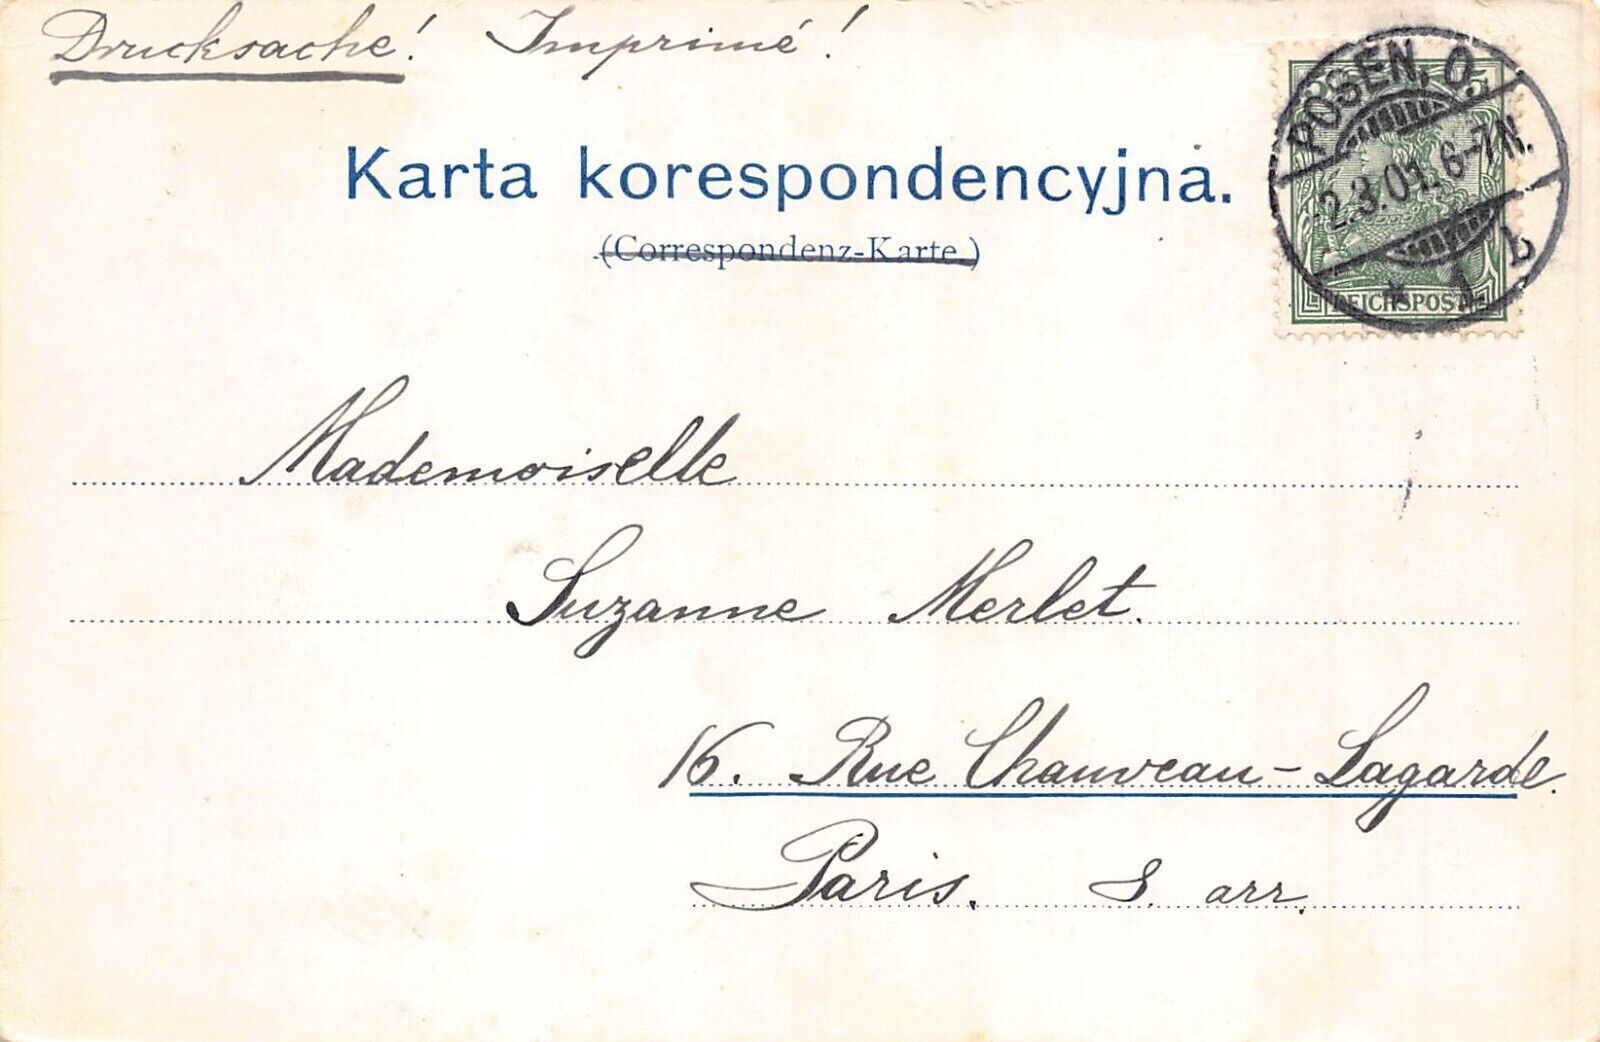 Drucksache! Imprimé!
Karta korespondencyjna.
(Correspondenz-Karte.)
POSEN, O.
2.3.01. 6-7N.
* 1 b
5
REICHSPOST
Mademoiselle
Suzanne Merlet.
16. Rue Chauveau-Lagarde.
Paris. 8. arr.